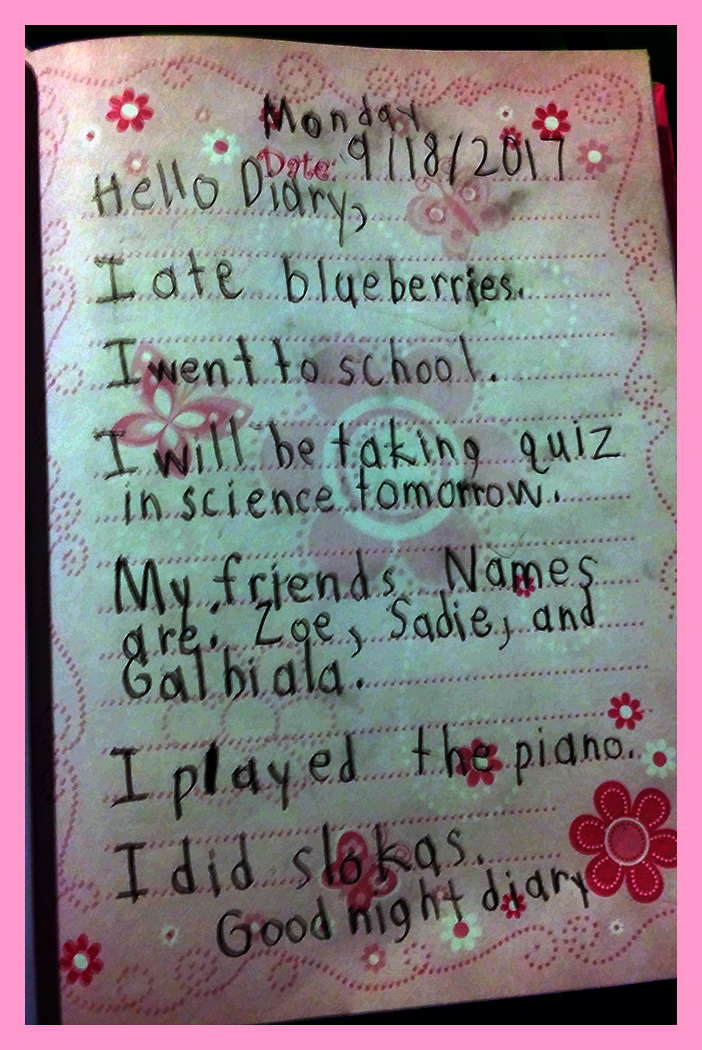 Monday
Date: 9/18/2017
Hello Diary,
I ate blueberries.
I went to school.
I will be taking quiz
in science tomorrow.
My friends Names
are. Zoe, Sadie, and
Galbiala.
I played the piano.
I did slokas.
Good night diary